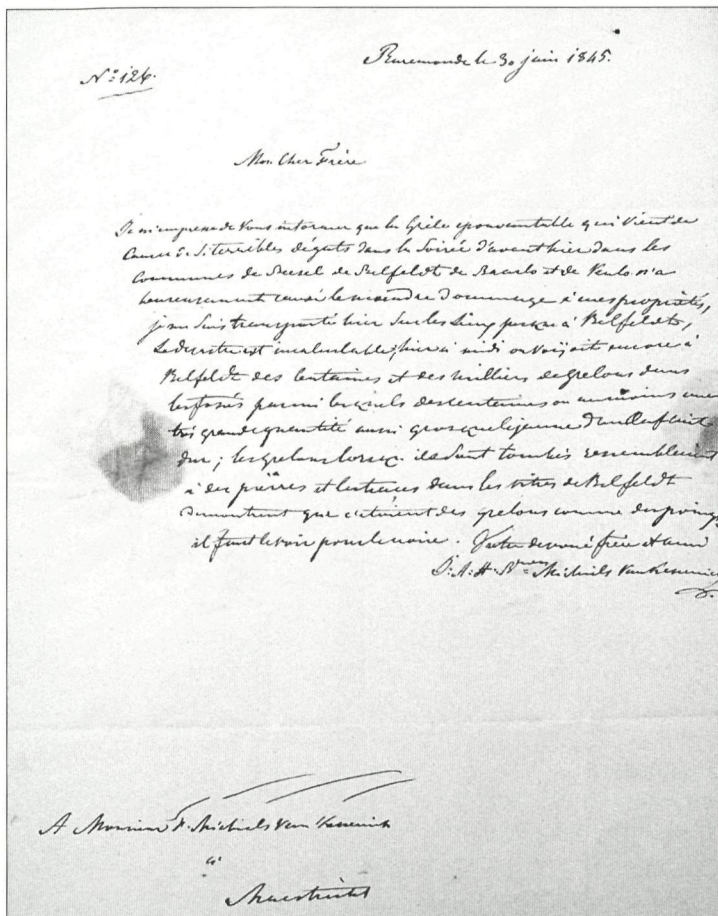 Ruremonde le 30 juin 1845.
N° 126.
Mon Cher Frère
Je m'empresse de Vous informer que la Grêle epouvantable qui Vient de
Causer de Si terribles dégats dans la Soirée d'avanthier dans les
Communes de Beesel de Belfeldt de Baarlo et de Venlo n'a
heureusement causé le moindre dommage à mes propriétés,
je me Suis transporté hier Sur les lieux jusqu'à Belfeldt,
le desastre est incalculable; hier à midi on Voijoit encore à
Belfeldt des Centaines et des milliers de grelons dans
les fossés parmi lesquels des centaines ou au moins une
très grande quantité aussi gros que le jeaune d'un Oeuf cuit
dur; les grelons lorsqu. ils Sont tombés ressembloient
à des pièrres et les traces dans les vitres de Belfeldt
demontrent que c'étoient des grelons comme des poings
il faut le voir pour le croire. Votre devoué frère et ami
P. A. H. Michiels Van Kessenich
A Monsieur F. Michiels Van Kessenich
à
Maestricht